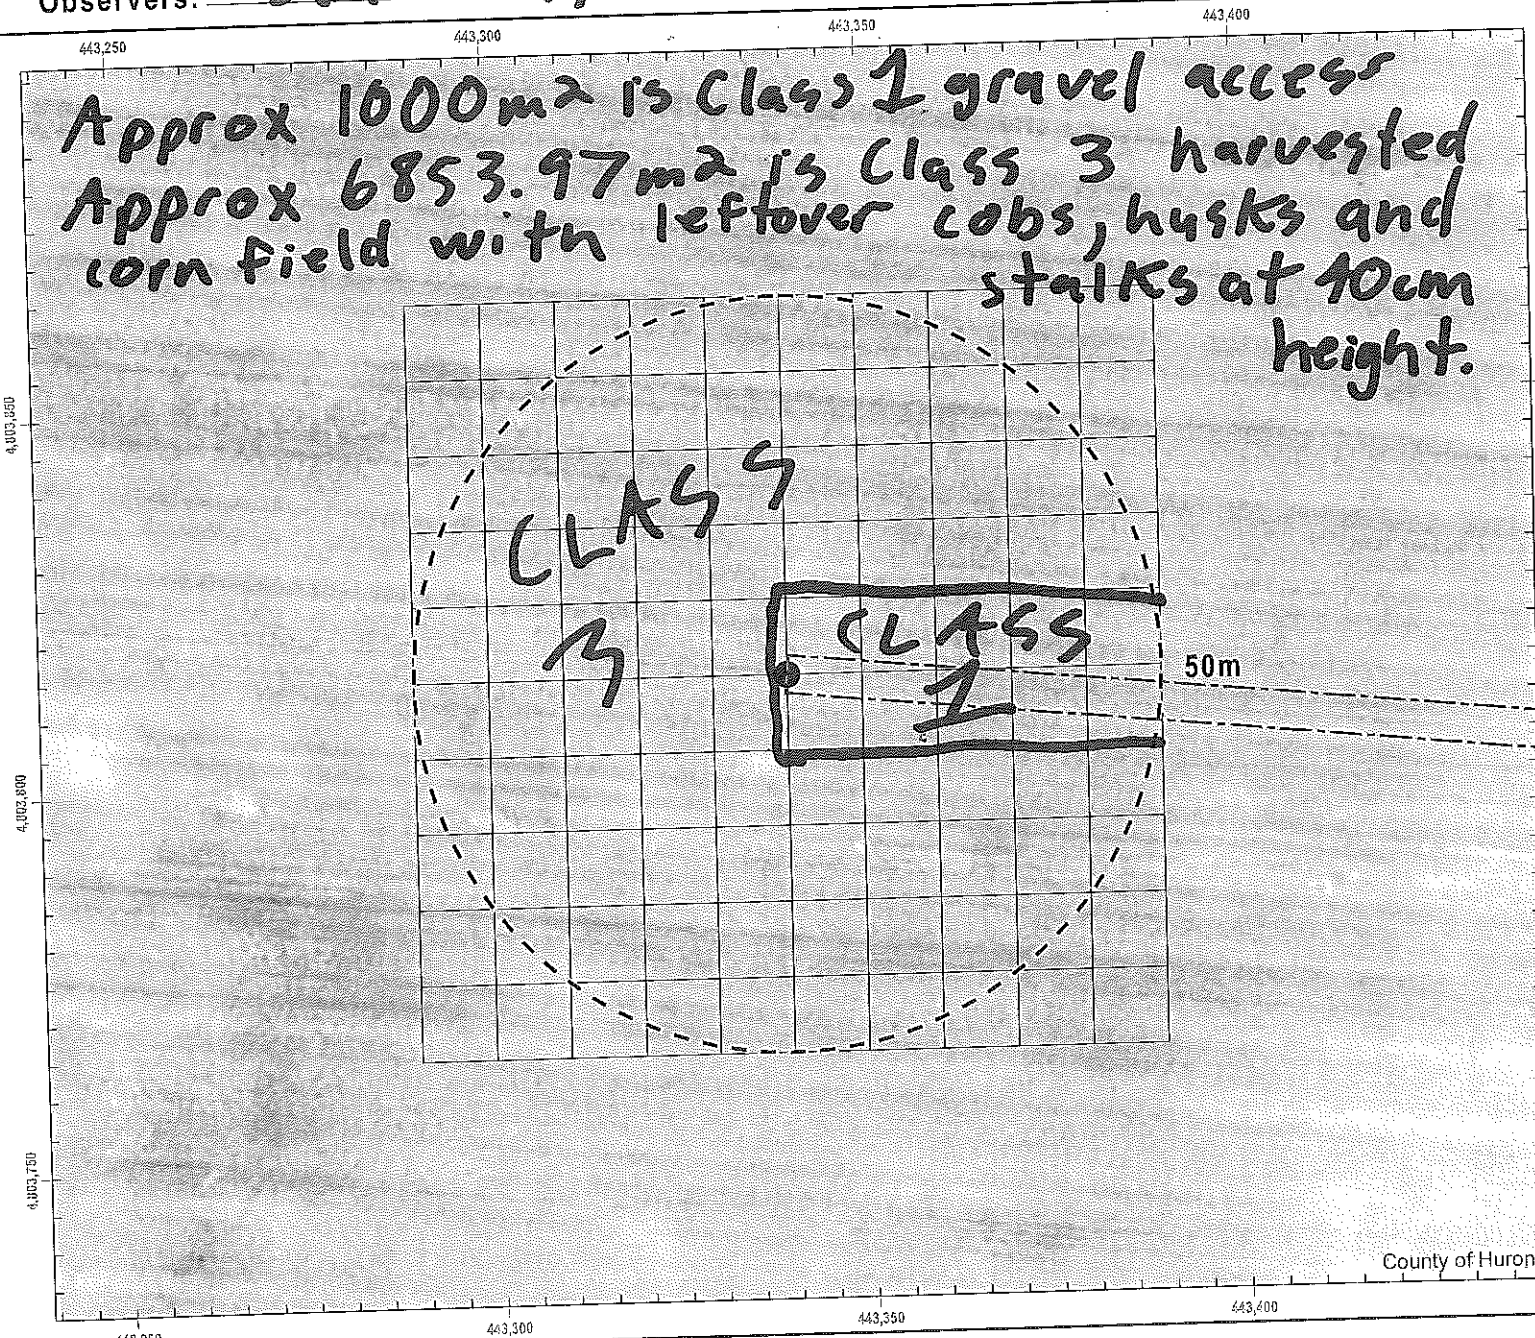 Observers:
443,250 443,300 443,350 443,400
Approx 1000m² is Class 1 gravel access
Approx 6853.97m² is Class 3 harvested
corn field with leftover cobs, husks and
stalks at 10cm
height.
4,803,850
CLASS
3
CLASS
1
50m
4,803,800
4,803,750
County of Huron
443,300 443,350 443,400